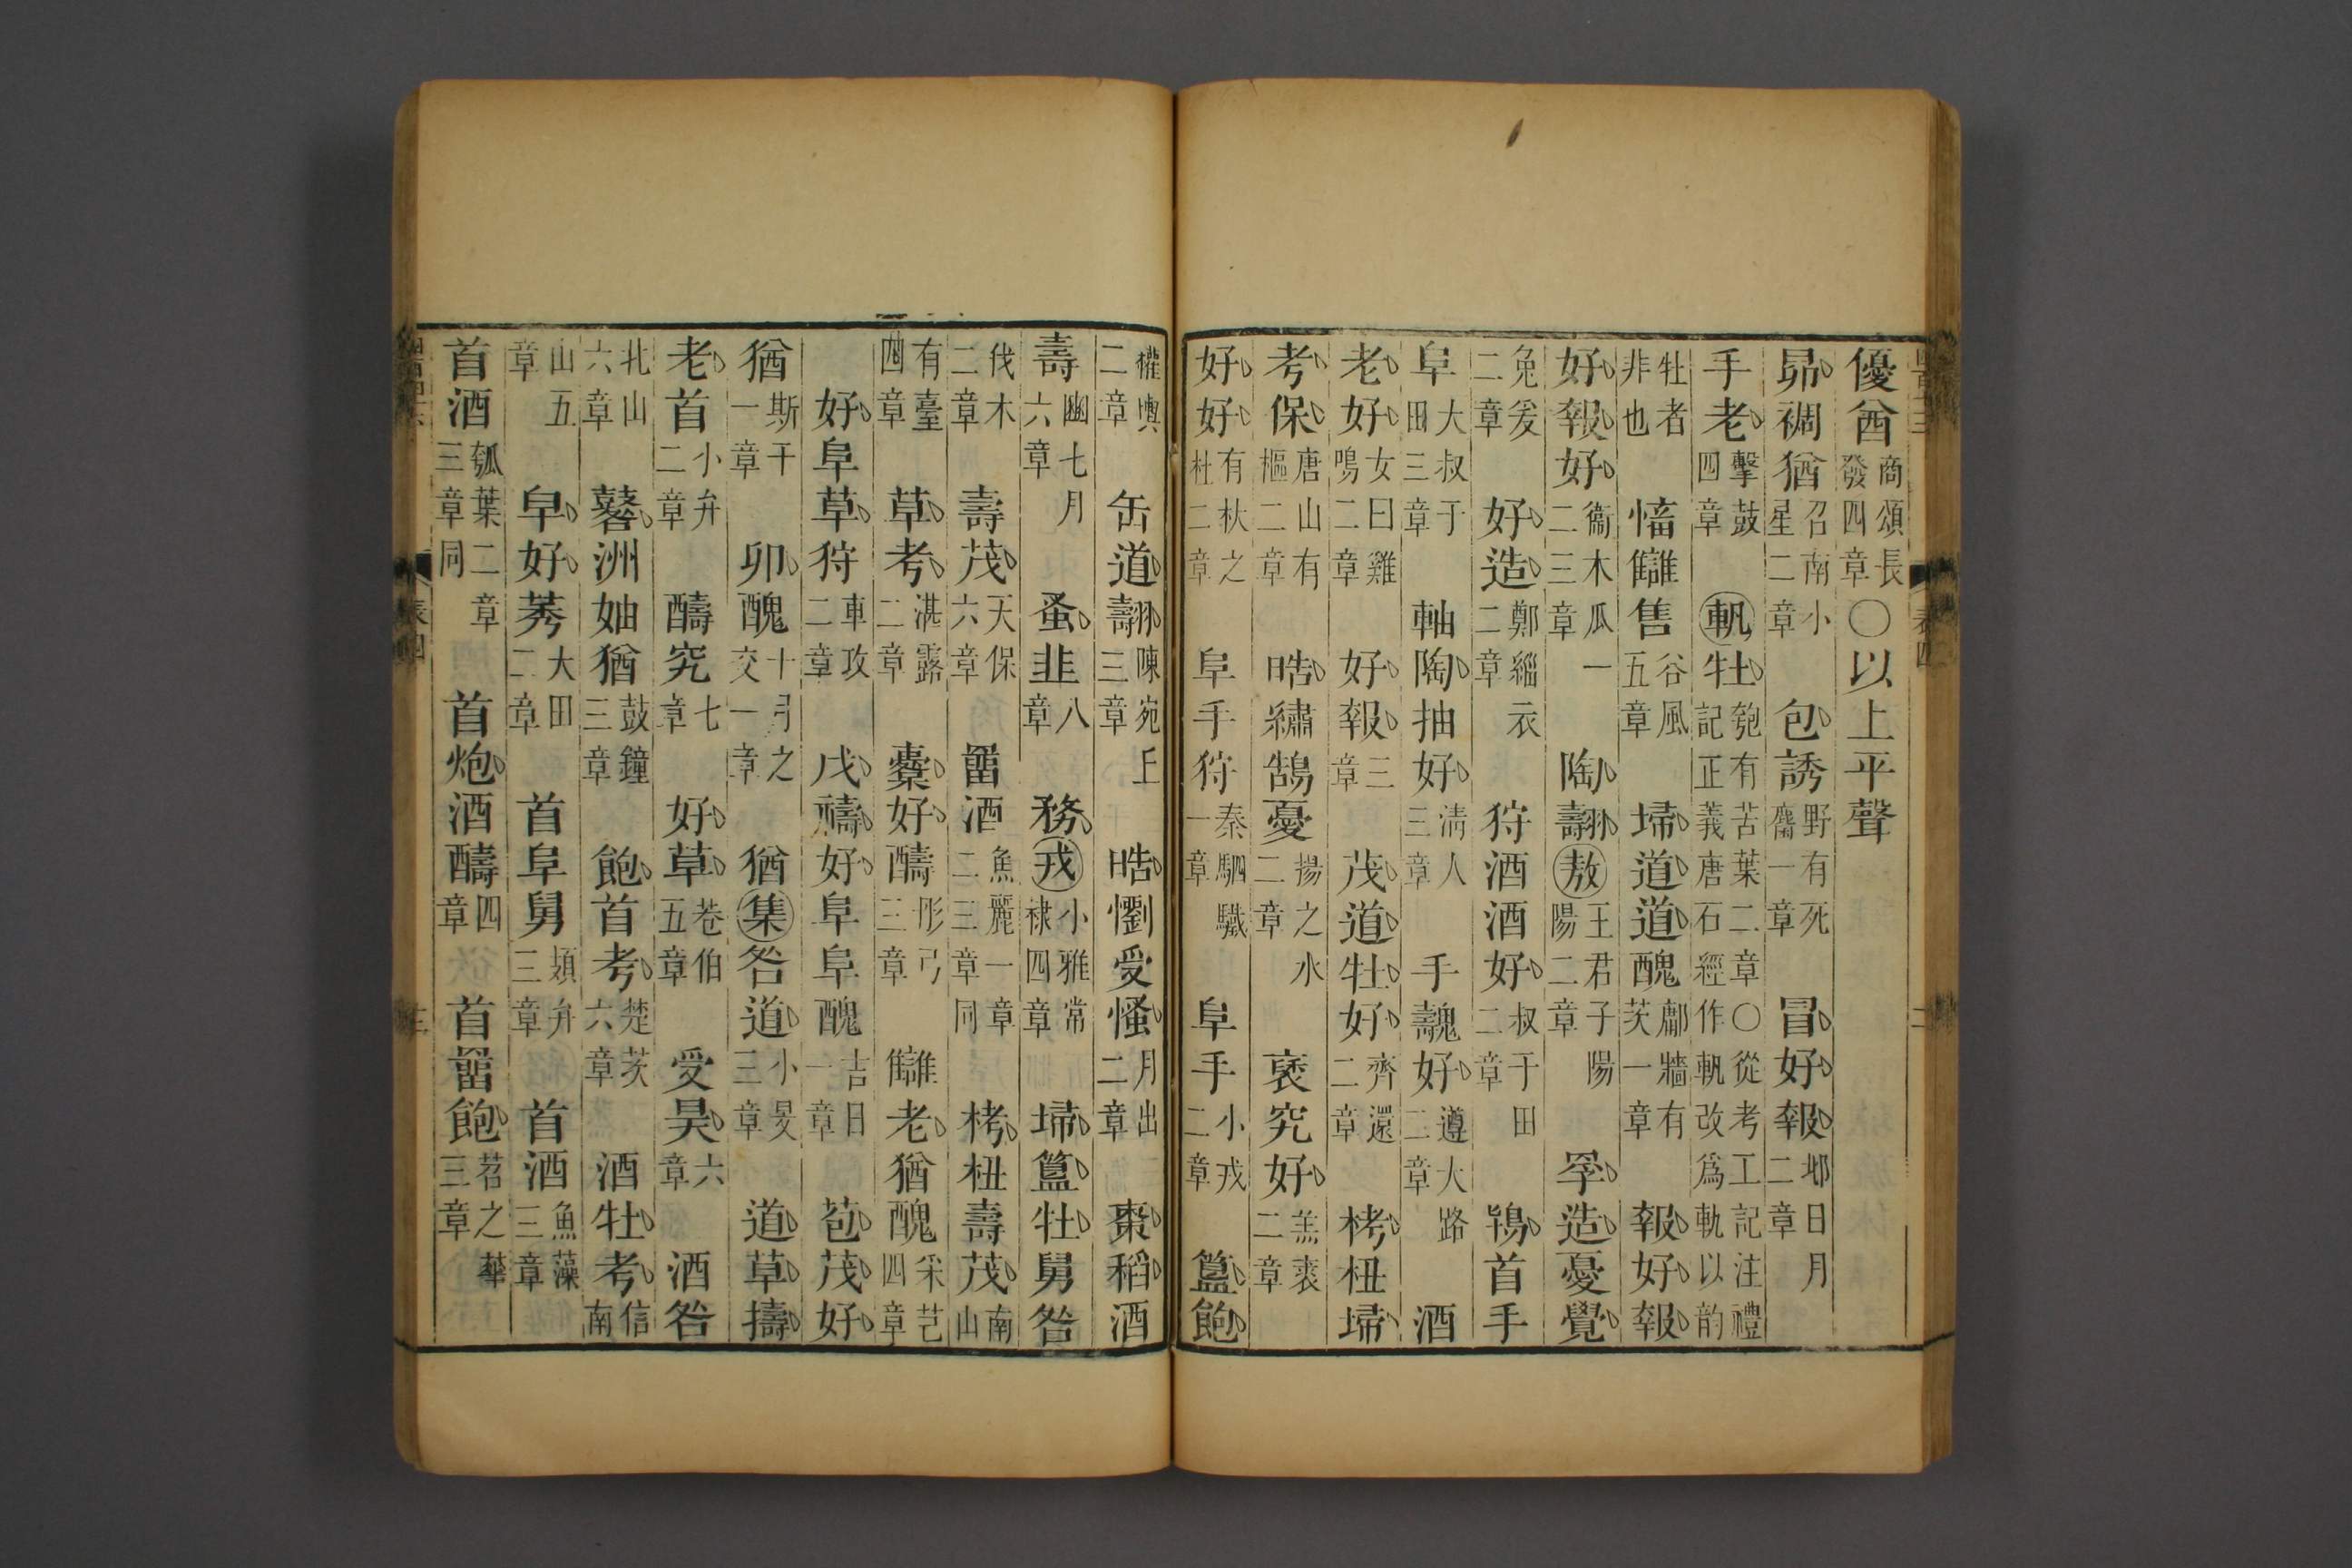 優酋商頌長發四章〇以上平聲
昴裯猶召南小星二章　包誘野有死麕一章　冒好報邶日月二章
手老擊鼓四章　軓牡匏有苦葉二章〇從考工記注禮記正義唐石經作軌改爲軌以韵
牡者非也　慉讎售谷風五章　埽道道醜鄘牆有茨一章　報好報
好報好衞木瓜一二三章　陶翿敖王君子陽陽二章　罦造憂覺
兔爰二章　好造鄭緇衣二章　狩酒酒好叔于田二章　鴇首手
阜大叔于田三章　軸陶抽好淸人三章　手魗好遵大路二章　酒
老好女曰雞鳴二章　好報三章　茂道牡好齊還二章　栲杻埽
考保唐山有樞二章　晧繡鵠憂揚之水二章　褎究好羔裘二章
好好有杕之杜二章　阜手狩秦駟驖一章　阜手小戎二章　簋飽
權輿二章　缶道翿陳宛丘三章　晧懰受慅月出二章　棗稻酒
壽豳七月六章　蚤韭八章　務戎小雅常棣四章　埽簋牡舅咎
伐木二章　壽茂天保六章　罶酒魚麗一章二三章同　栲杻壽茂南山
有臺四章　草考湛露二章　櫜好醻彤弓三章　讎老猶醜采芑四章
好阜草狩車攻二章　戊禱好阜阜醜吉日一章　苞茂好
猶斯干一章　卯醜十月之交一章　猶集咎道小旻三章　道草擣
老首小弁二章　醻究七章　好草巷伯五章　受昊六章　酒咎
北山六章　鼛洲妯猶鼓鐘三章　飽首考楚茨六章　酒牡考信南
山五章　皁好莠大田二章　首阜舅頍弁三章　首酒魚藻三章
首酒瓠葉二章三章同　首炮酒醻四章　首罶飽苕之華三章